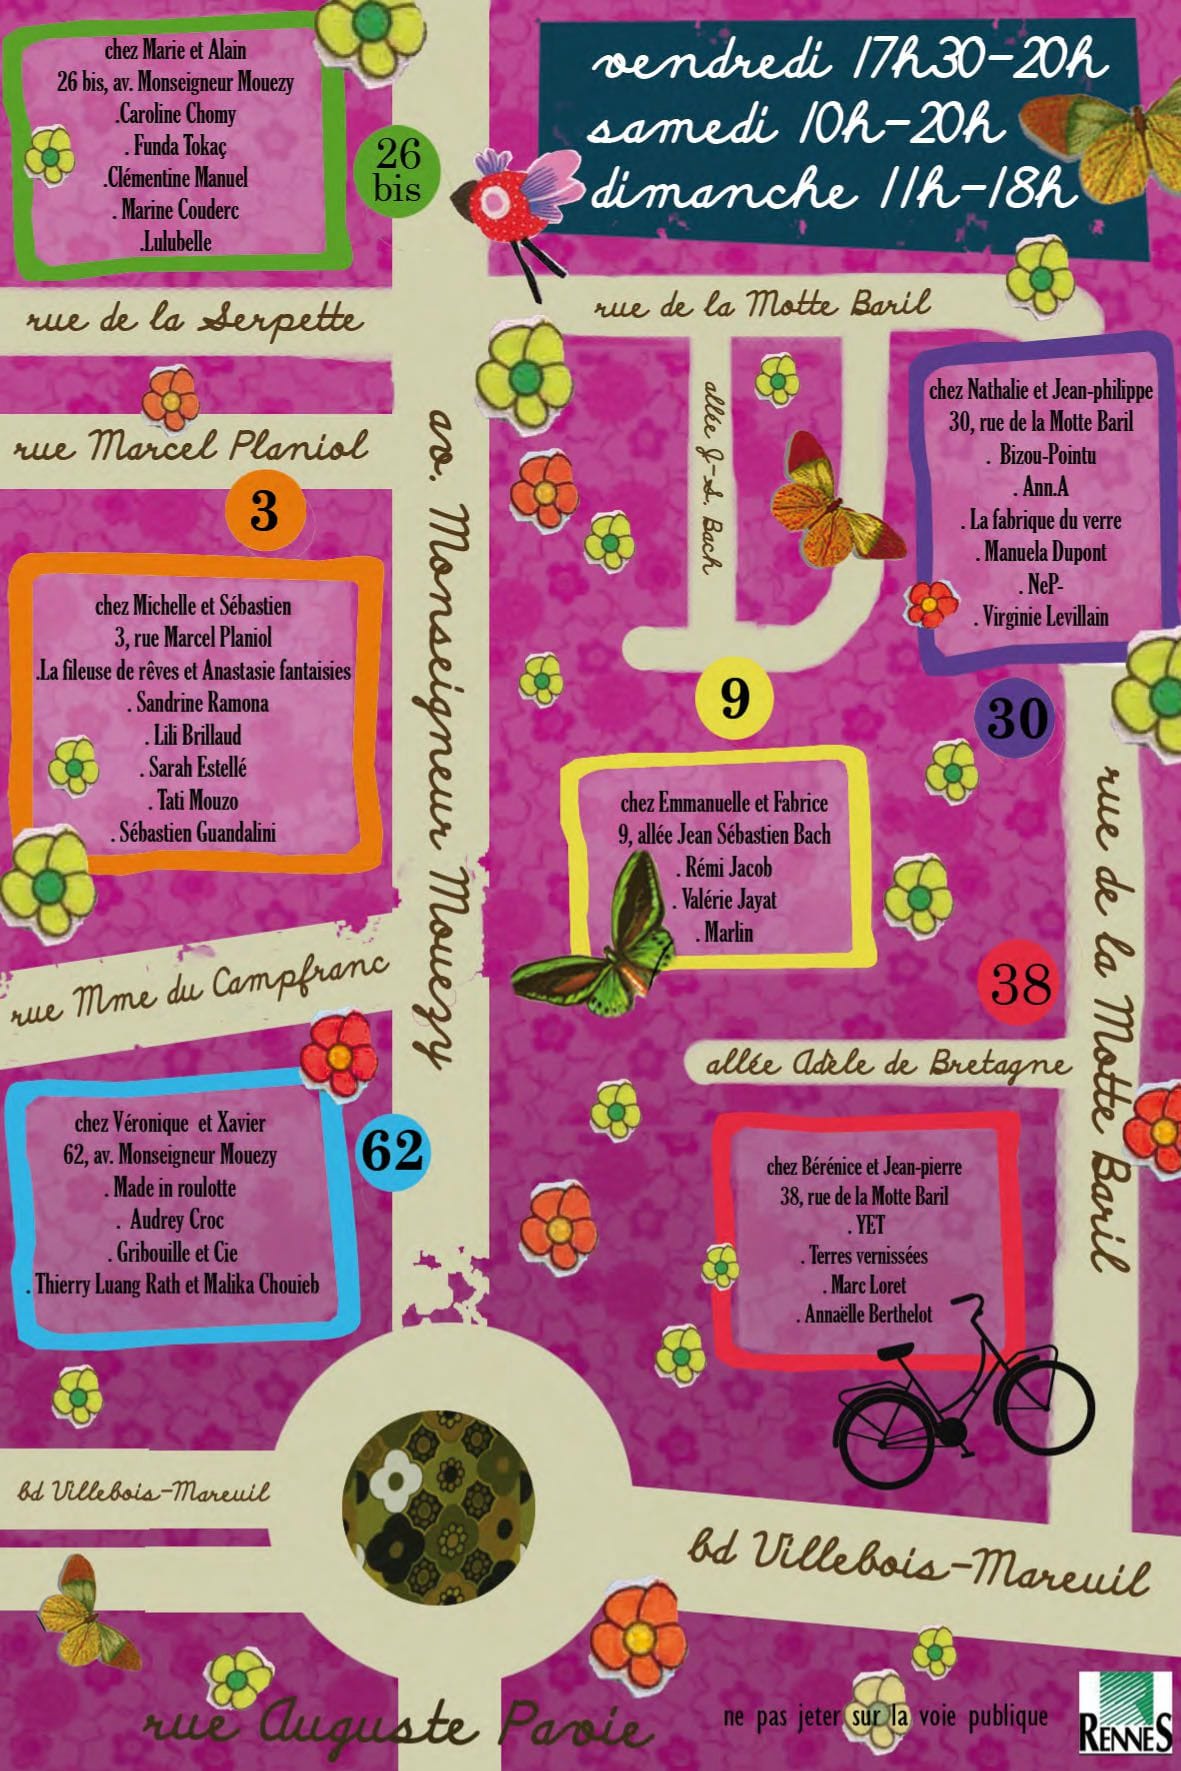 chez Marie et Alain
26 bis, av. Monseigneur Mouezy
.Caroline Chomy
. Funda Tokaç
.Clémentine Manuel
. Marine Couderc
.Lulubelle
26
bis
vendredi 17h30-20h
samedi 10h-20h
dimanche 11h-18h
rue de la Serpette
rue de la Motte Baril
rue Marcel Planiol
av. Monseigneur Mouezy
allée J-S. Bach
chez Nathalie et Jean-philippe
30, rue de la Motte Baril
. Bizou-Pointu
. Ann.A
. La fabrique du verre
. Manuela Dupont
. NeP-
. Virginie Levillain
3
chez Michelle et Sébastien
3, rue Marcel Planiol
.La fileuse de rêves et Anastasie fantaisies
. Sandrine Ramona
. Lili Brillaud
. Sarah Estellé
. Tati Mouzo
. Sébastien Guandalini
9
30
chez Emmanuelle et Fabrice
9, allée Jean Sébastien Bach
. Rémi Jacob
. Valérie Jayat
. Marlin
rue de la Motte Baril
rue Mme du Campfranc
38
allée Adèle de Bretagne
chez Véronique et Xavier
62, av. Monseigneur Mouezy
. Made in roulotte
. Audrey Croc
. Gribouille et Cie
. Thierry Luang Rath et Malika Chouieb
62
chez Bérénice et Jean-pierre
38, rue de la Motte Baril
. YET
. Terres vernissées
. Marc Loret
. Annaëlle Berthelot
bd Villebois-Mareuil
bd Villebois-Mareuil
rue Auguste Pavie
ne pas jeter sur la voie publique
RENNES